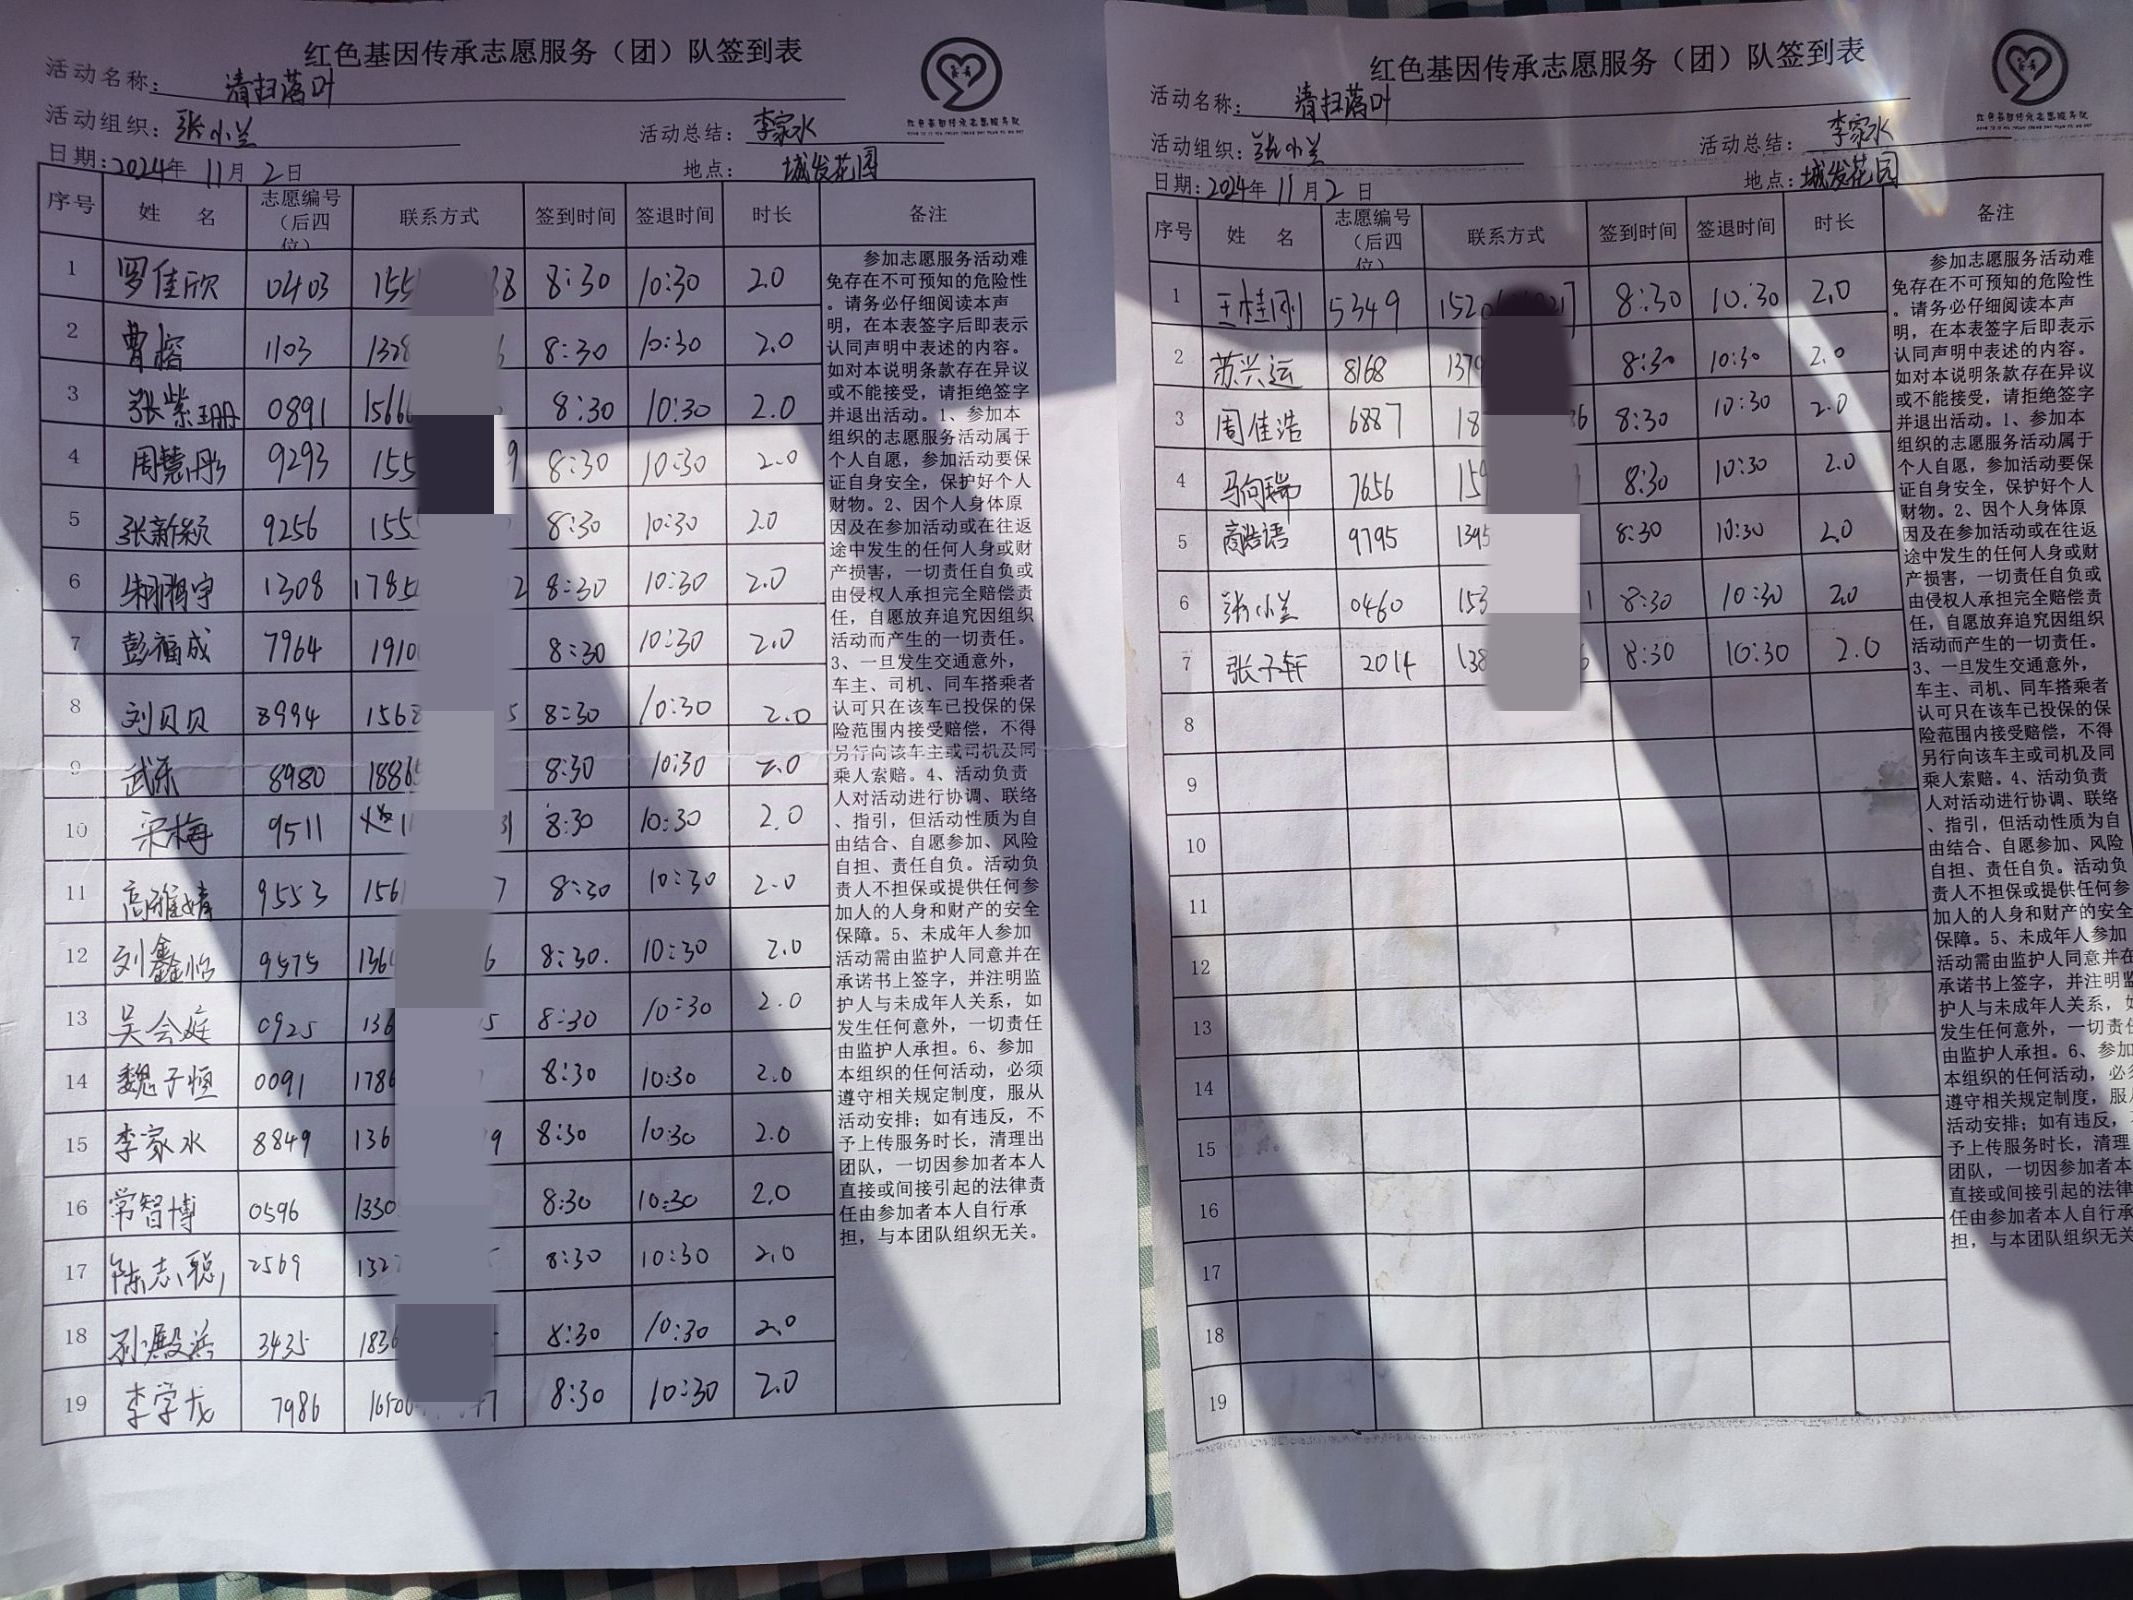 红色基因传承志愿服务（团）队签到表
活动名称： 清扫落叶
活动组织： 张小兰 活动总结： 李家水
日期：2024年 11月 2日 地点： 城发花园
序号 姓 名 志愿编号（后四位） 联系方式 签到时间 签退时间 时长 备注
1 罗佳欣 0403 155 38 8:30 10:30 2.0
2 曹榕 1103 1328 6 8:30 10:30 2.0
3 张紫珊 0891 1566 8:30 10:30 2.0
4 周慧彤 9293 155 9 8:30 10:30 2.0
5 张新颖 9256 155 8:30 10:30 2.0
6 鹏宇 1308 1785 2 8:30 10:30 2.0
7 彭福成 7964 1910 8:30 10:30 2.0
8 刘贝贝 8994 1568 5 8:30 10:30 2.0
9 武乐 8980 1886 8:30 10:30 2.0
10 宋梅 9511 31 8:30 10:30 2.0
11 高雅婧 9553 156 7 8:30 10:30 2.0
12 刘鑫怡 9575 136 6 8:30. 10:30 2.0
13 吴会庭 0925 136 5 8:30 10:30 2.0
14 魏子恒 0091 1786 8:30 10:30 2.0
15 李家水 8849 136 9 8:30 10:30 2.0
16 常智博 0596 1330 8:30 10:30 2.0
17 陈志聪 2569 132 8:30 10:30 2.0
18 孙殿 3435 183 8:30 10:30 2.0
19 李学龙 7986 1650 7 8:30 10:30 2.0
参加志愿服务活动难
免存在不可预知的危险性
。请务必仔细阅读本声
明，在本表签字后即表示
认同声明中表述的内容。
如对本说明条款存在异议
或不能接受，请拒绝签字
并退出活动。1、参加本
组织的志愿服务活动属于
个人自愿，参加活动要保
证自身安全，保护好个人
财物。2、因个人身体原
因及在参加活动或在往返
途中发生的任何人身或财
产损害，一切责任自负或
由侵权人承担完全赔偿责
任，自愿放弃追究因组织
活动而产生的一切责任。
3、一旦发生交通意外，
车主、司机、同车搭乘者
认可只在该车已投保的保
险范围内接受赔偿，不得
另行向该车主或司机及同
乘人索赔。4、活动负责
人对活动进行协调、联络
、指引，但活动性质为自
由结合、自愿参加、风险
自担、责任自负。活动负
责人不担保或提供任何参
加人的人身和财产的安全
保障。5、未成年人参加
活动需由监护人同意并在
承诺书上签字，并注明监
护人与未成年人关系，如
发生任何意外，一切责任
由监护人承担。6、参加
本组织的任何活动，必须
遵守相关规定制度，服从
活动安排；如有违反，不
予上传服务时长，清理出
团队，一切因参加者本人
直接或间接引起的法律责
任由参加者本人自行承
担，与本团队组织无关。
红色基因传承志愿服务队
红色基因传承志愿服务（团）队签到表
活动名称： 清扫落叶
活动组织： 张小兰 活动总结： 李家水
日期：2024年 11月 2日 地点： 城发花园
序号 姓 名 志愿编号（后四位） 联系方式 签到时间 签退时间 时长 备注
1 王桂刚 5349 152 7 8:30 10:30 2.0
2 苏兴运 8168 137 8:30 10:30 2.0
3 周佳浩 6887 18 86 8:30 10:30 2.0
4 马向瑞 7656 159 8:30 10:30 2.0
5 商皓语 9795 1395 8:30 10:30 2.0
6 张小兰 0460 153 1 8:30 10:30 2.0
7 张子轩 2014 138 8:30 10:30 2.0
8
9
10
11
12
13
14
15
16
17
18
19
参加志愿服务活动难
免存在不可预知的危险性
。请务必仔细阅读本声
明，在本表签字后即表示
认同声明中表述的内容。
如对本说明条款存在异议
或不能接受，请拒绝签字
并退出活动。1、参加本
组织的志愿服务活动属于
个人自愿，参加活动要保
证自身安全，保护好个人
财物。2、因个人身体原
因及在参加活动或在往返
途中发生的任何人身或财
产损害，一切责任自负或
由侵权人承担完全赔偿责
任，自愿放弃追究因组织
活动而产生的一切责任。
3、一旦发生交通意外，
车主、司机、同车搭乘者
认可只在该车已投保的保
险范围内接受赔偿，不得
另行向该车主或司机及同
乘人索赔。4、活动负责
人对活动进行协调、联络
、指引，但活动性质为自
由结合、自愿参加、风险
自担、责任自负。活动负
责人不担保或提供任何参
加人的人身和财产的安全
保障。5、未成年人参加
活动需由监护人同意并在
承诺书上签字，并注明监
护人与未成年人关系，如
发生任何意外，一切责任
由监护人承担。6、参加
本组织的任何活动，必须
遵守相关规定制度，服从
活动安排；如有违反，
予上传服务时长，清理
团队，一切因参加者本
直接或间接引起的法律
任由参加者本人自行承
担，与本团队组织无关
红色基因传承志愿服务队